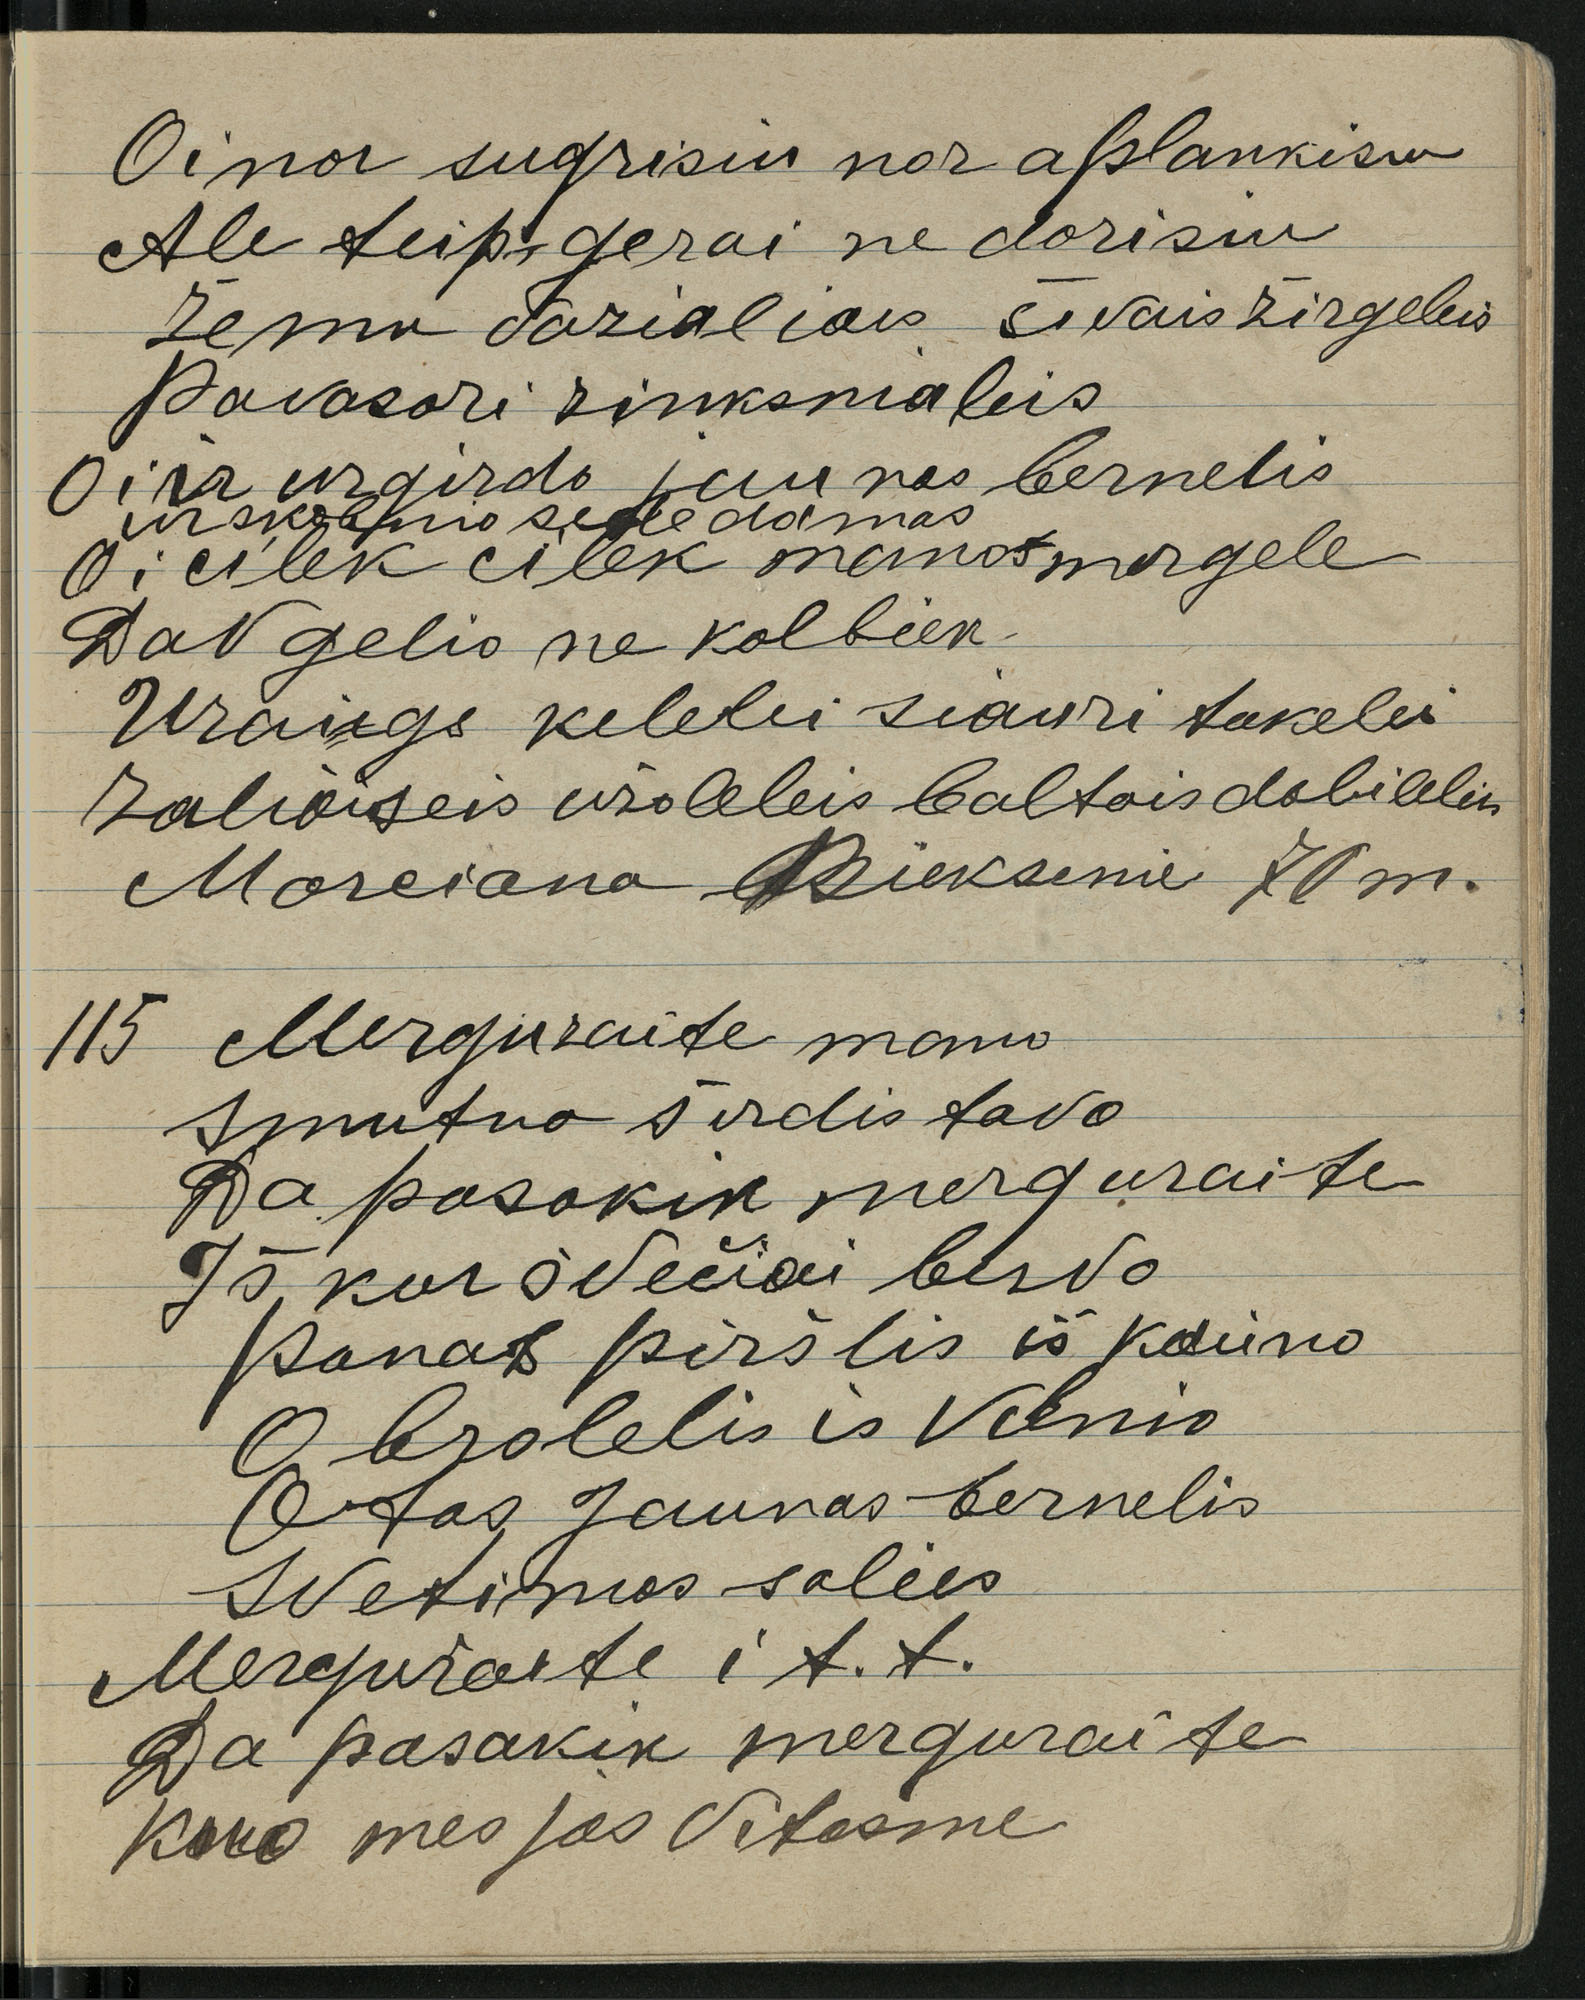 Oi nor sugrisiu nor aplankisu
Ale teip gerai ne dorisiu
Žemu vazialiais sivais žirgeleis
Pavasari zinksnialeis
Oi ir urgirdo jaunas bernelis
urskobnio sededamas
Oi cilek cilek manos mergele
Da V gelio ne kolbiek
Uraugo kelelei siauri takelei
Zalioiseis uzoleleis baltois dobileleis
Morciana Bieksenie 70 m.
115 Merguzaite mano
Smutna širdis tavo
Da pasakik merguzaite
Iš kur švečiai buvo
Ponas piršlis iš Kauno
O brolelis is Vilnio
O tas Jaunas bernelis
Svetimos salies
Mergužaite i t. t.
Da pasakik merguzaite
Kuo mes jos Vitasme